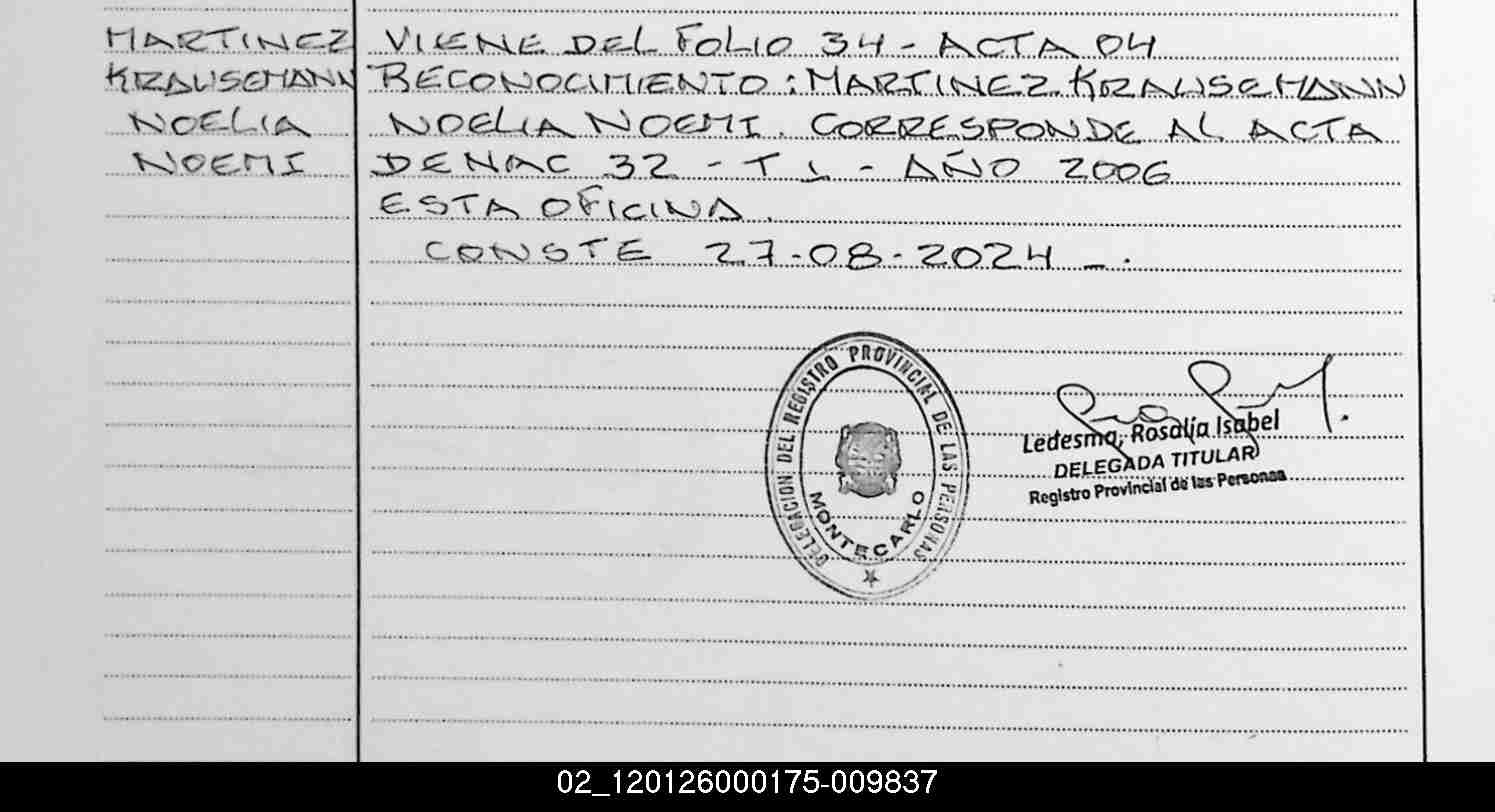 MARTINEZ
KRAUSEMANN
NOELIA
NOEMI
VIENE DEL FOLIO 34 - ACTA 04
RECONOCIMIENTO: MARTINEZ KRAUSEMANN
NOELIA NOEMI. CORRESPONDE AL ACTA
DE NAC 32 - T 1 - AÑO 2006
ESTA OFICINA.
CONSTE 27-08-2024 -.
DELEGACION DEL REGISTRO PROVINCIAL DE LAS PERSONAS
MONTECARLO
Ledesma, Rosalía Isabel
DELEGADA TITULAR
Registro Provincial de las Personas
02_120126000175-009837